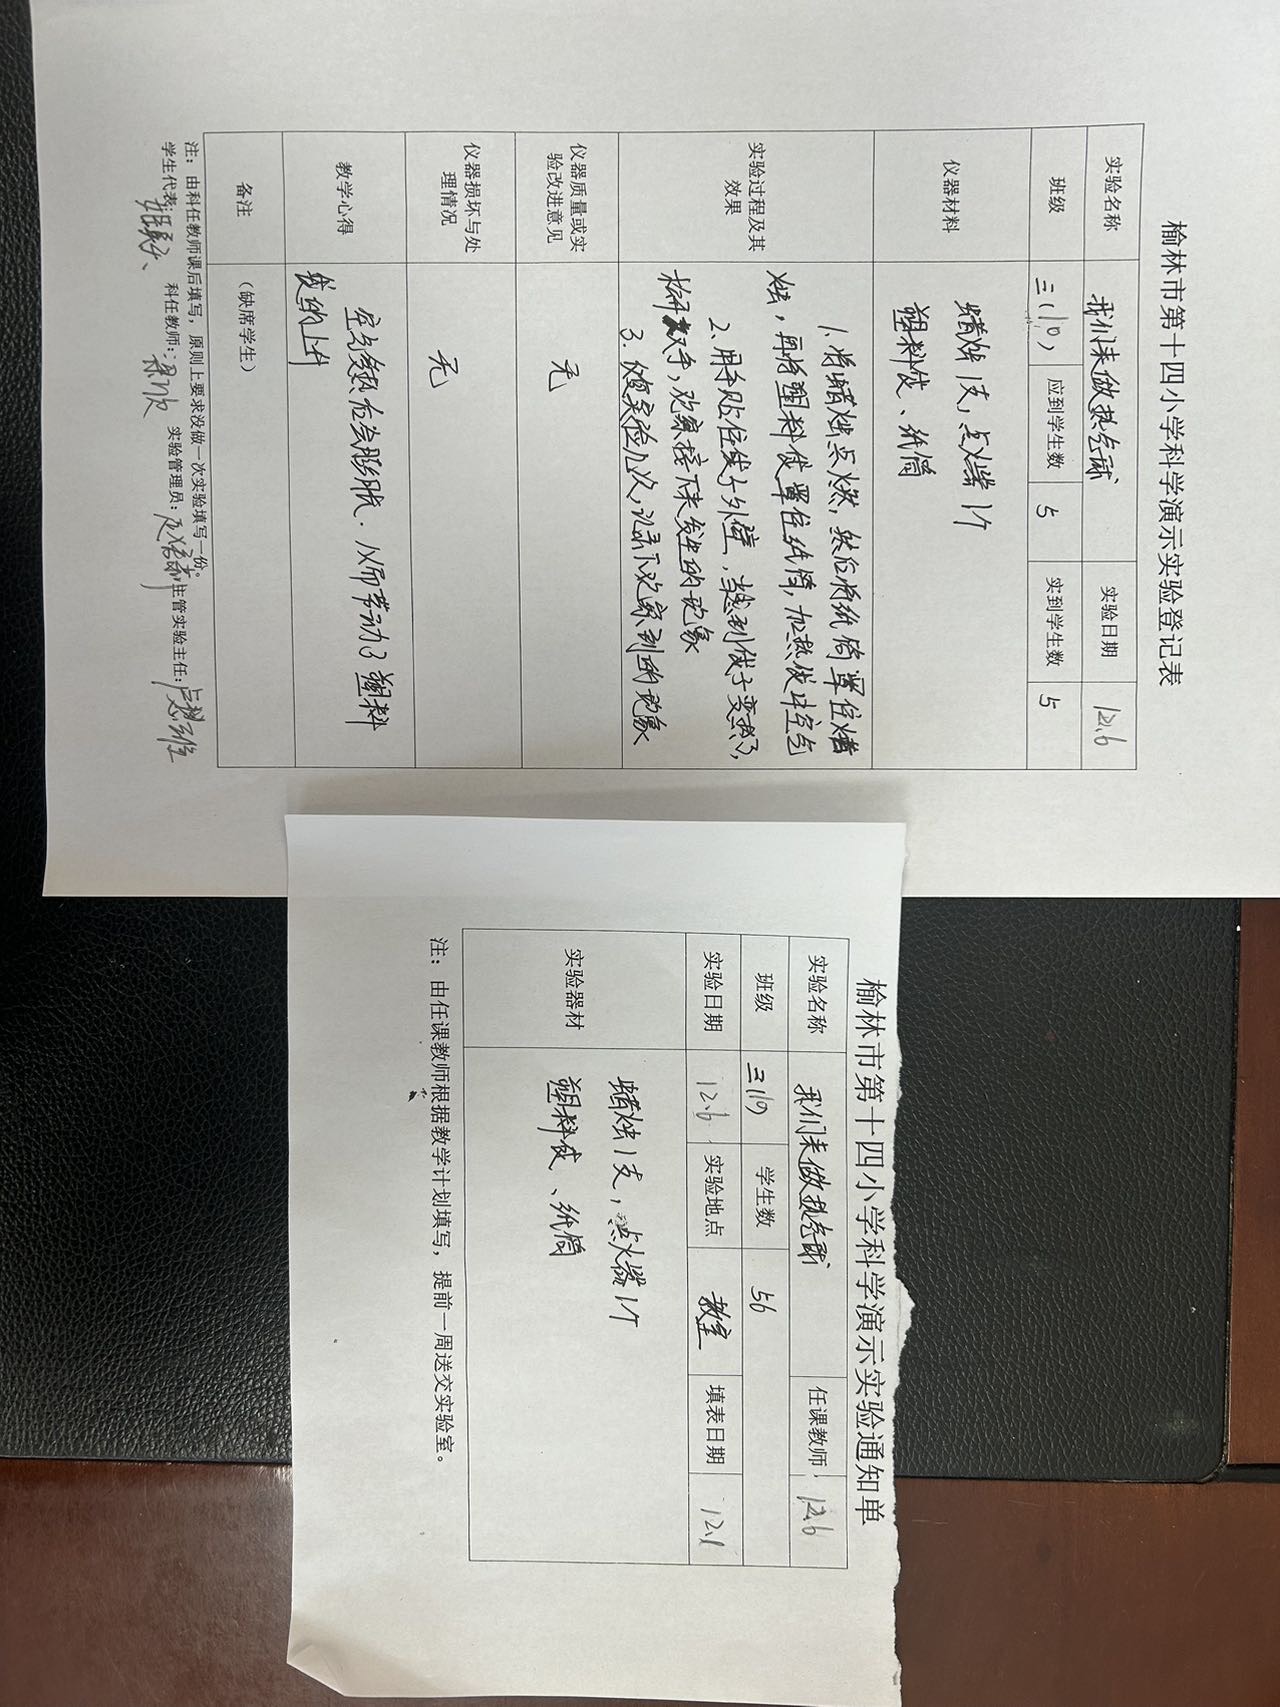 榆林市第十四小学科学演示实验登记表
实验名称 我们来做热气球 实验日期 12.6
班级 三(10) 应到学生数 5 实到学生数 5
仪器材料 蜡烛1支,点火器1个
塑料袋、纸筒
实验过程及其效果
1、将蜡烛点燃,然后将纸筒罩住蜡
烛,再将塑料袋罩住纸筒,加热袋中空气
2、用手贴住袋子外壁,当感到袋子变热了,
松开双手,观察接下来发生的现象
3、做实验几次,记录下观察到的现象
仪器质量或实验改进意见 无
仪器损坏与处理情况 无
教学心得 空气受热后会膨胀.从而带动了塑料
袋的上升
备注 (缺席学生)
注:由科任教师课后填写,原则上要求没做一次实验填写一份。
学生代表: 科任教师: 实验管理员: 主管实验主任:
榆林市第十四小学科学演示实验通知单
实验名称 我们来做热气球 任课教师 12.6
班级 三(10) 学生数 56
实验日期 12.6 实验地点 教室 填表日期 12.1
实验器材 蜡烛1支,点火器1个
塑料袋、纸筒
注:由任课教师根据教学计划填写,提前一周送交实验室。